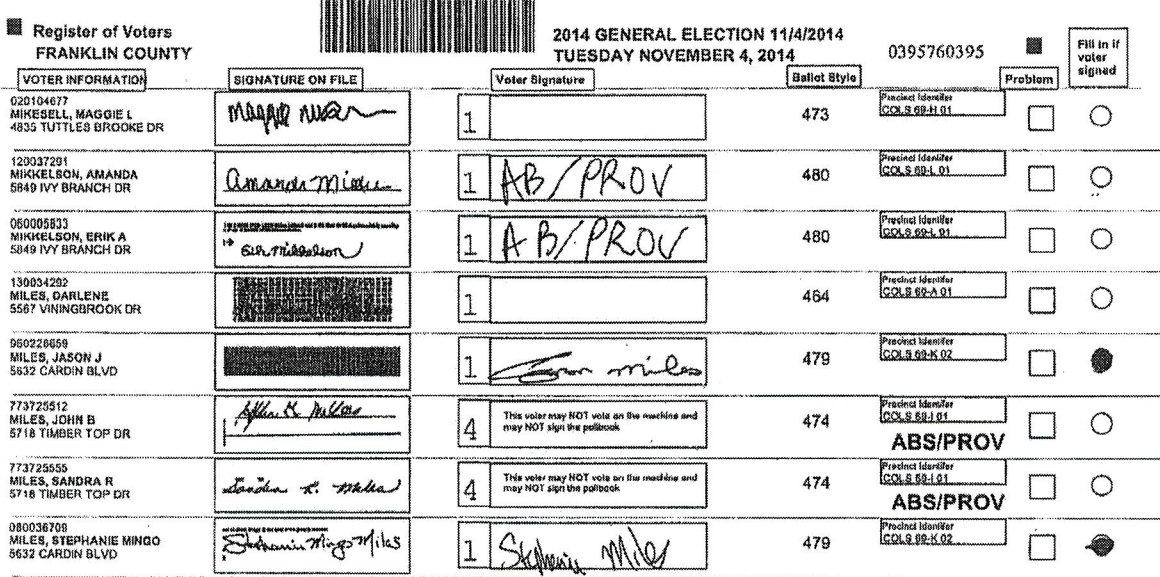 Register of Voters
FRANKLIN COUNTY
2014 GENERAL ELECTION 11/4/2014
TUESDAY NOVEMBER 4, 2014
0395760395
Fill in if
voter
signed
VOTER INFORMATION
SIGNATURE ON FILE
Voter Signature
Ballot Style
Problem
020104677
MIKESELL, MAGGIE L
4835 TUTTLES BROOKE DR
1
473
Precinct Identifer
COLS 69-H 01
120037291
MIKKELSON, AMANDA
5849 IVY BRANCH DR
Amanda
1
AB/PROV
480
Precinct Identifer
COLS 69-L 01
060005833
MIKKELSON, ERIK A
5849 IVY BRANCH DR
Mikkelson
1
AB/PROV
480
Precinct Identifer
COLS 69-L 01
130034292
MILES, DARLENE
5567 VININGBROOK DR
1
464
Precinct Identifer
COLS 69-A 01
960226659
MILES, JASON J
5632 CARDIN BLVD
1
miles
479
Precinct Identifer
COLS 69-K 02
773725512
MILES, JOHN B
5718 TIMBER TOP DR
4
This voter may NOT vote on the machine and
may NOT sign the pollbook
474
Precinct Identifer
COLS 69-I 01
ABS/PROV
773725555
MILES, SANDRA R
5718 TIMBER TOP DR
Sandra R. Miles
4
This voter may NOT vote on the machine and
may NOT sign the pollbook
474
Precinct Identifer
COLS 69-I 01
ABS/PROV
080036709
MILES, STEPHANIE MINGO
5632 CARDIN BLVD
Stephanie Mingo Miles
1
Stephanie Miles
479
Precinct Identifer
COLS 69-K 02